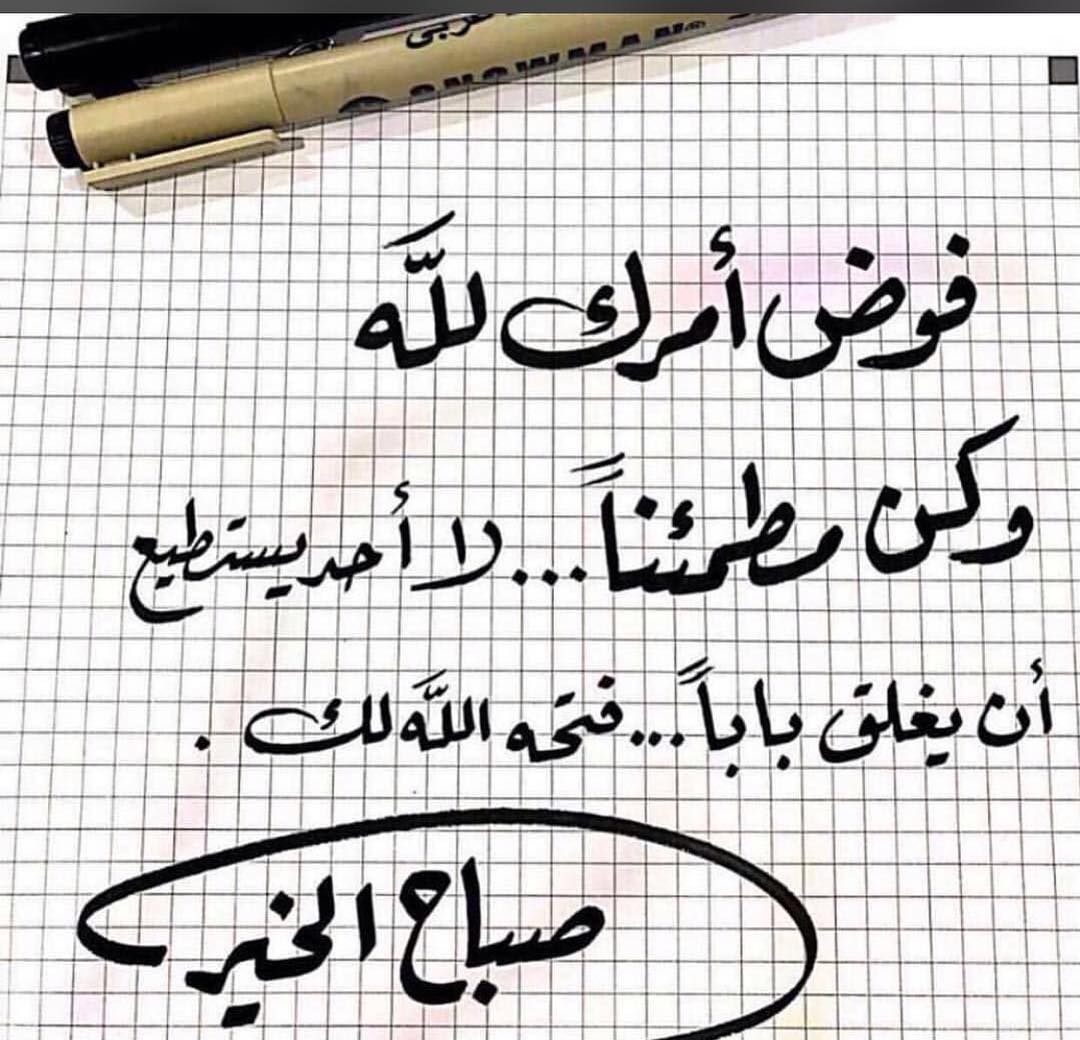 عربي
SNOWMAN
فوض أمرك للَّه
وكن مطمئناً...لا أحد يستطيع
أن يغلق باباً...فتحه اللَّه لك .
صباح الخير